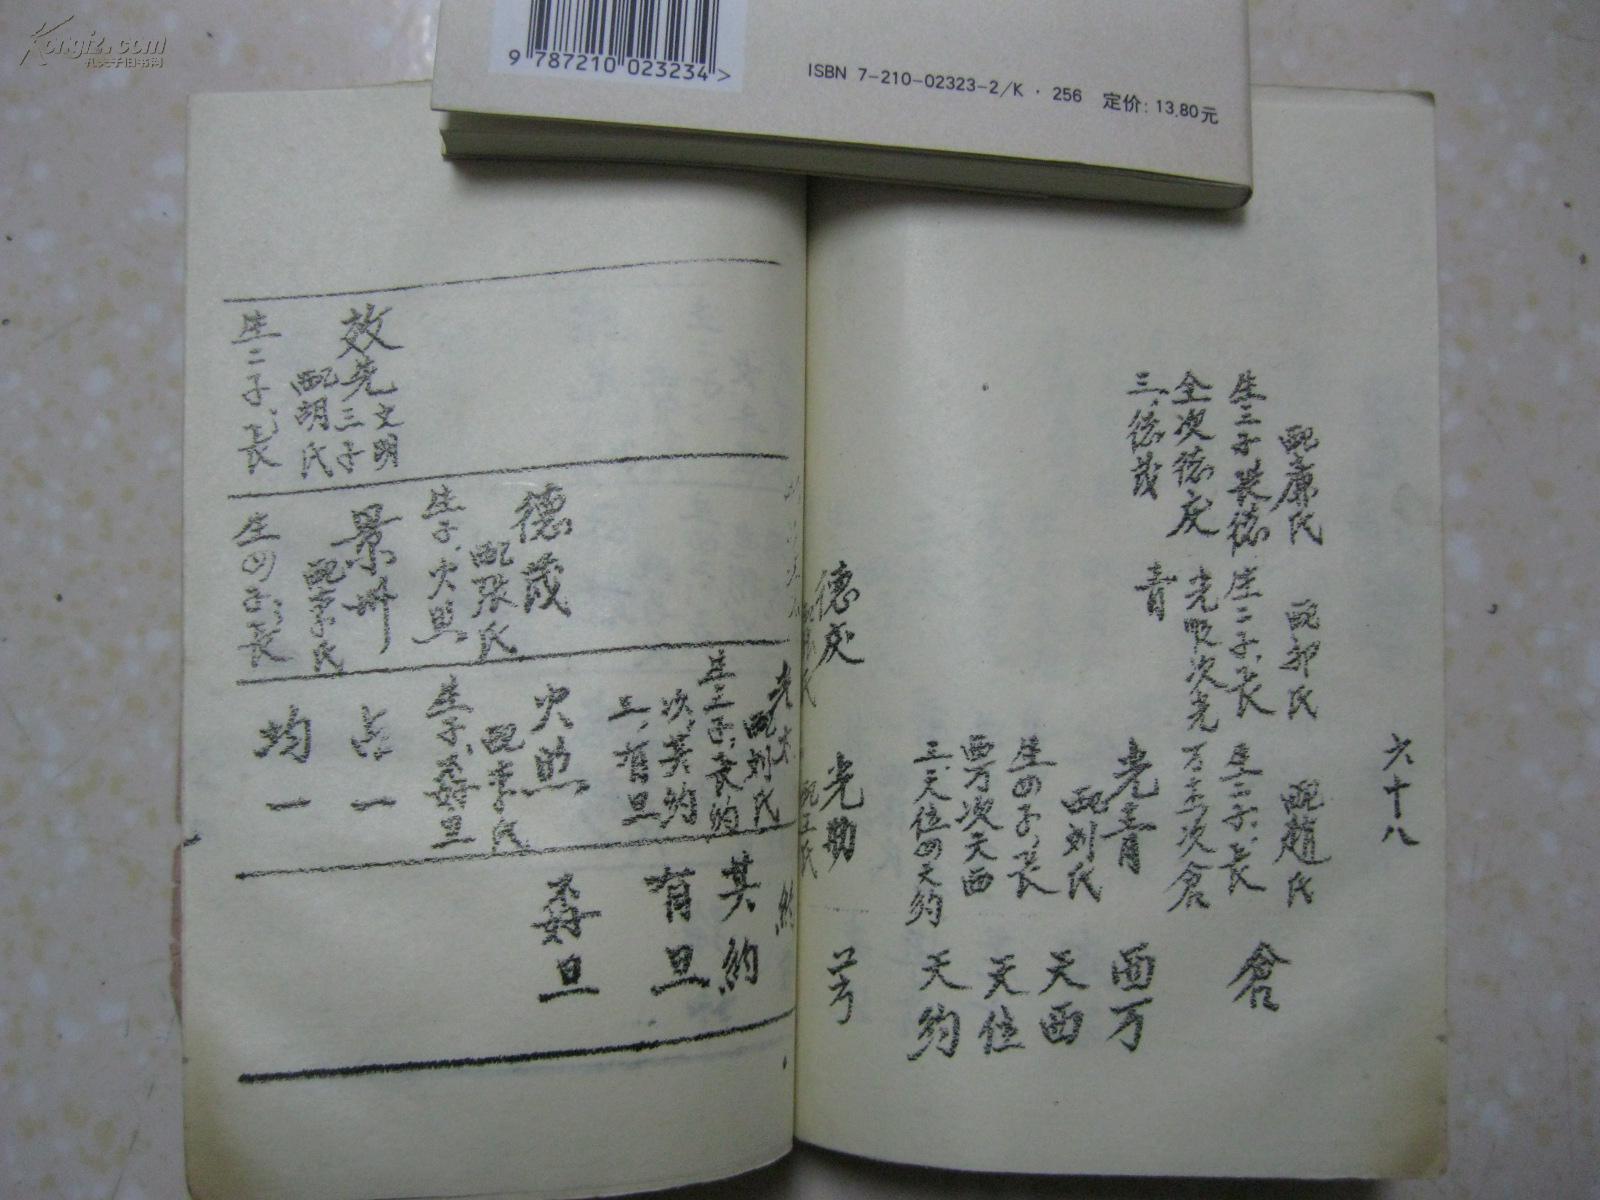 Kongfz.com
孔夫子旧书网
9 787210 023234 >
ISBN 7-210-02323-2/K · 256 定价: 13.80元
六十八
配廉氏
生三子长德
全次德庆
三德茂
配郭氏
生二子长
光照次光
青
配赵氏
生二子长
万立次仓
仓
光青
配刘氏
生四子长
西万次天西
三天位四天约
西万
天西
天位
天约
德庆
光助
配王氏
配刘氏
生三子长约
次其约
三有旦
其约
有旦
德茂
配张氏
生子火照
火照
配李氏
生子孬旦
孬旦
效先三子文明
配胡氏
生二子长
景州
配李氏
生四子长
占一
均一